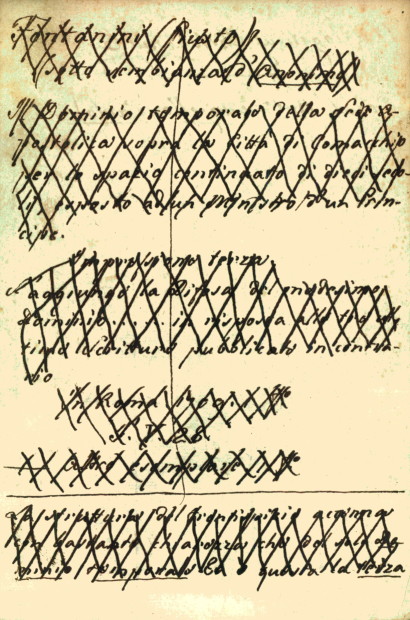 Fontanini (Giusto)
sotto sembianza d'Anonimo
Il Dominio temporale della Sede A-
postolica sopra la Città di Comacchio
per lo spazio continuato di dieci seco-
li esposto ad un Ministro d'un Prin-
cipe.
Impressione terza.
S'aggiunge la Difesa del medesimo
Dominio.... in risposta alle tre ul-
time scritture pubblicate in contra-
rio
in Roma 1709.
altro esemplare
La scrittura del frontispizio accenna
con bastante chiarezza che del solo Do-
minio temporale è questa la terza